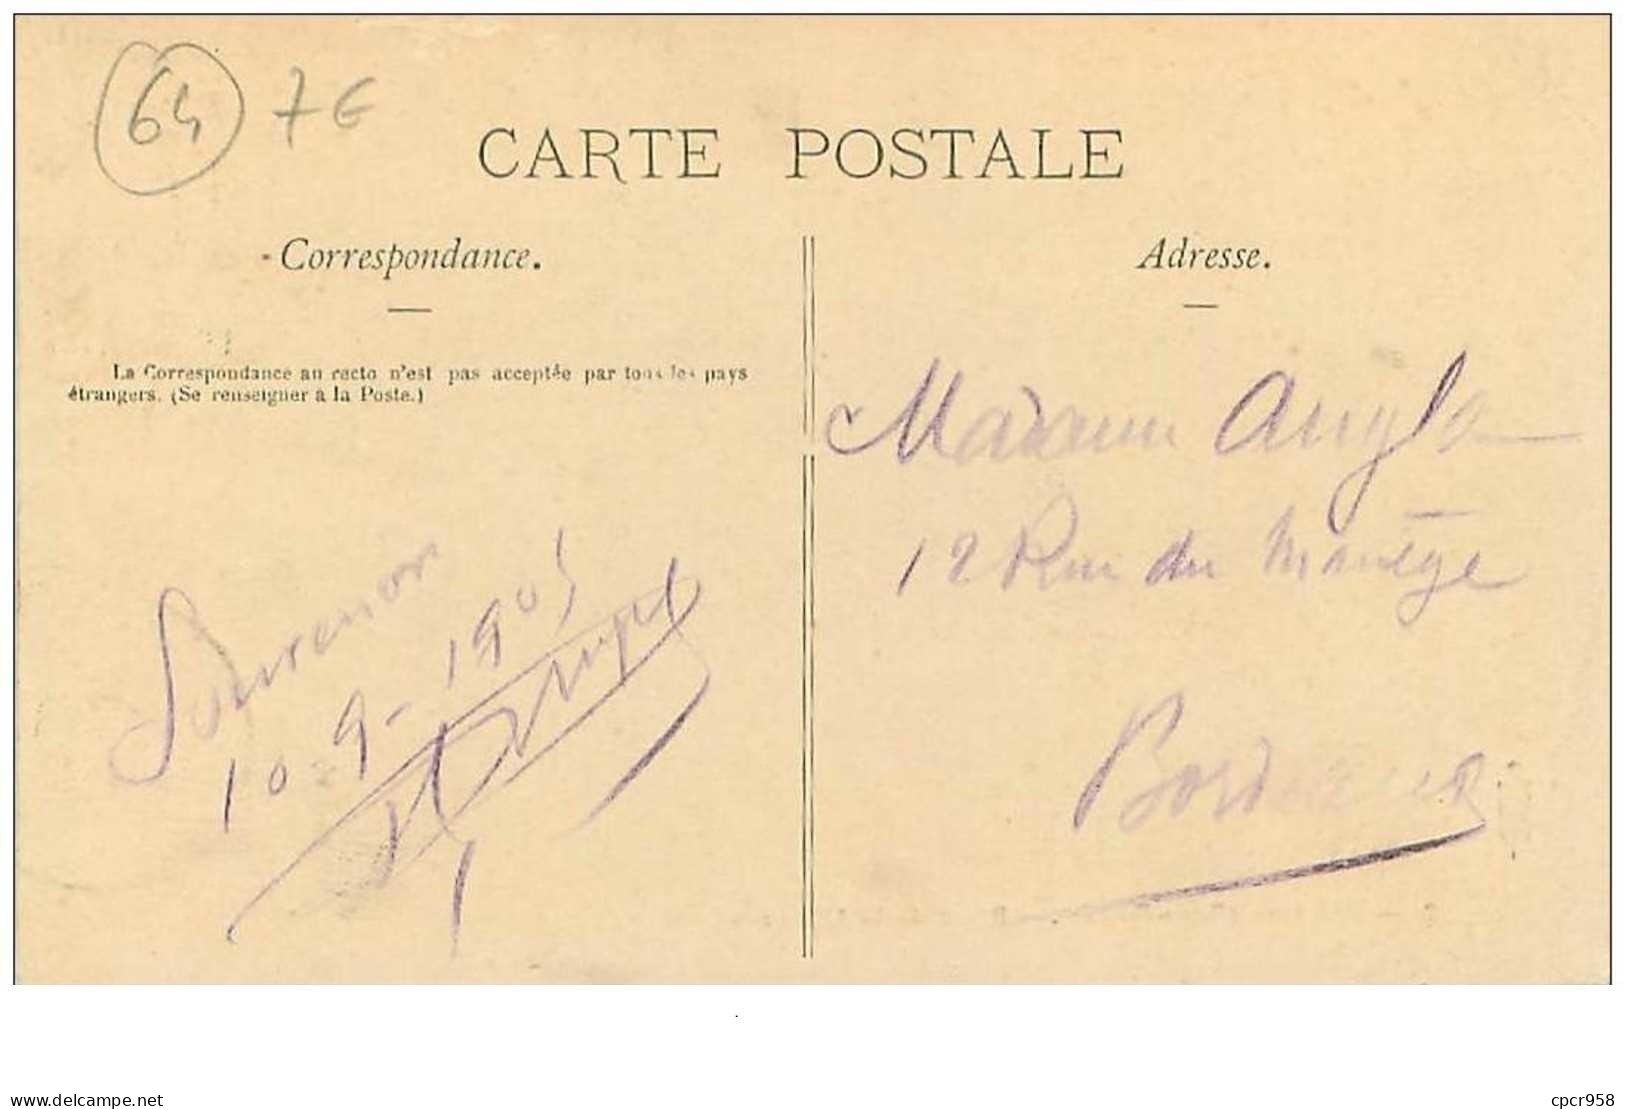 64 7€
CARTE POSTALE
Correspondance.
Adresse.
La Correspondance au recto n'est pas acceptée par tous les pays
étrangers. (Se renseigner à la Poste.)
Madame
12 Rue du Manège
Bordeaux
Souvenir
10-9-1905
delcampe.net
cpcr958